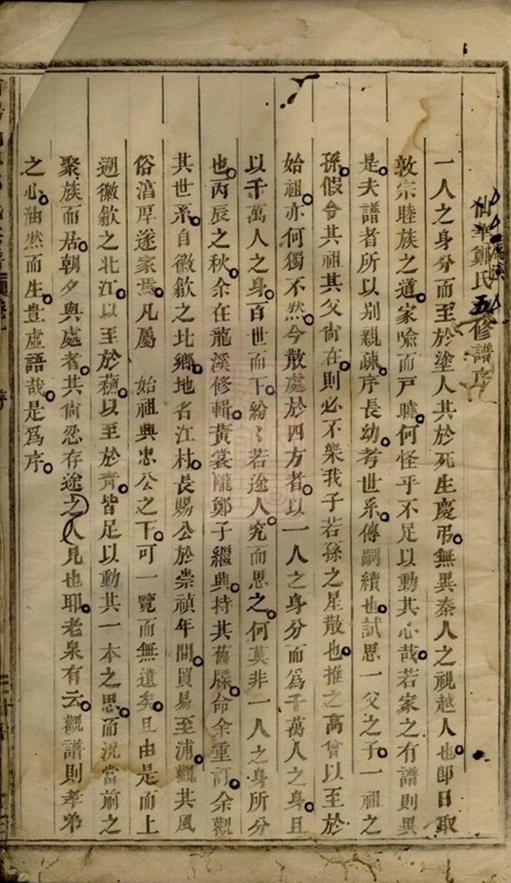 仙華鄭氏五修譜序
一人之身分而至於塗人其於死生慶弔無異秦人之視越人也卽日取
敦宗睦族之道家喻而戸曉何怪乎不足以動其心哉若家之有譜則異
是夫譜者所以别親疎序長幼考世系傳嗣續也試思一父之子一祖之
孫假令其祖其父尙在則必不樂我子若孫之星散也推之高曾以至於
始祖亦何獨不然今散處於四方者以一人之身分而爲千萬人之身且
以千萬人之身百世而下紛〻若途人究而思之何莫非一人之身所分
也丙辰之秋余在龍溪修輯黃裳隴鄭子繼典持其舊牒命余重訂余觀
其世系自徽歙之北鄉地名江村長賜公於崇禎年間貿易至浦觀其風
俗湻厚遂家焉凡屬 始祖興忠公之下可一覽而無遺矣且由是而上
遡徽歙之北江以至於蘓以至於靑皆足以動其一本之思而況當前之
聚族而居朝夕與處者其尙忍存途之人見也耶老泉有云觀譜則孝弟
之心油然而生豈虛語哉是爲序